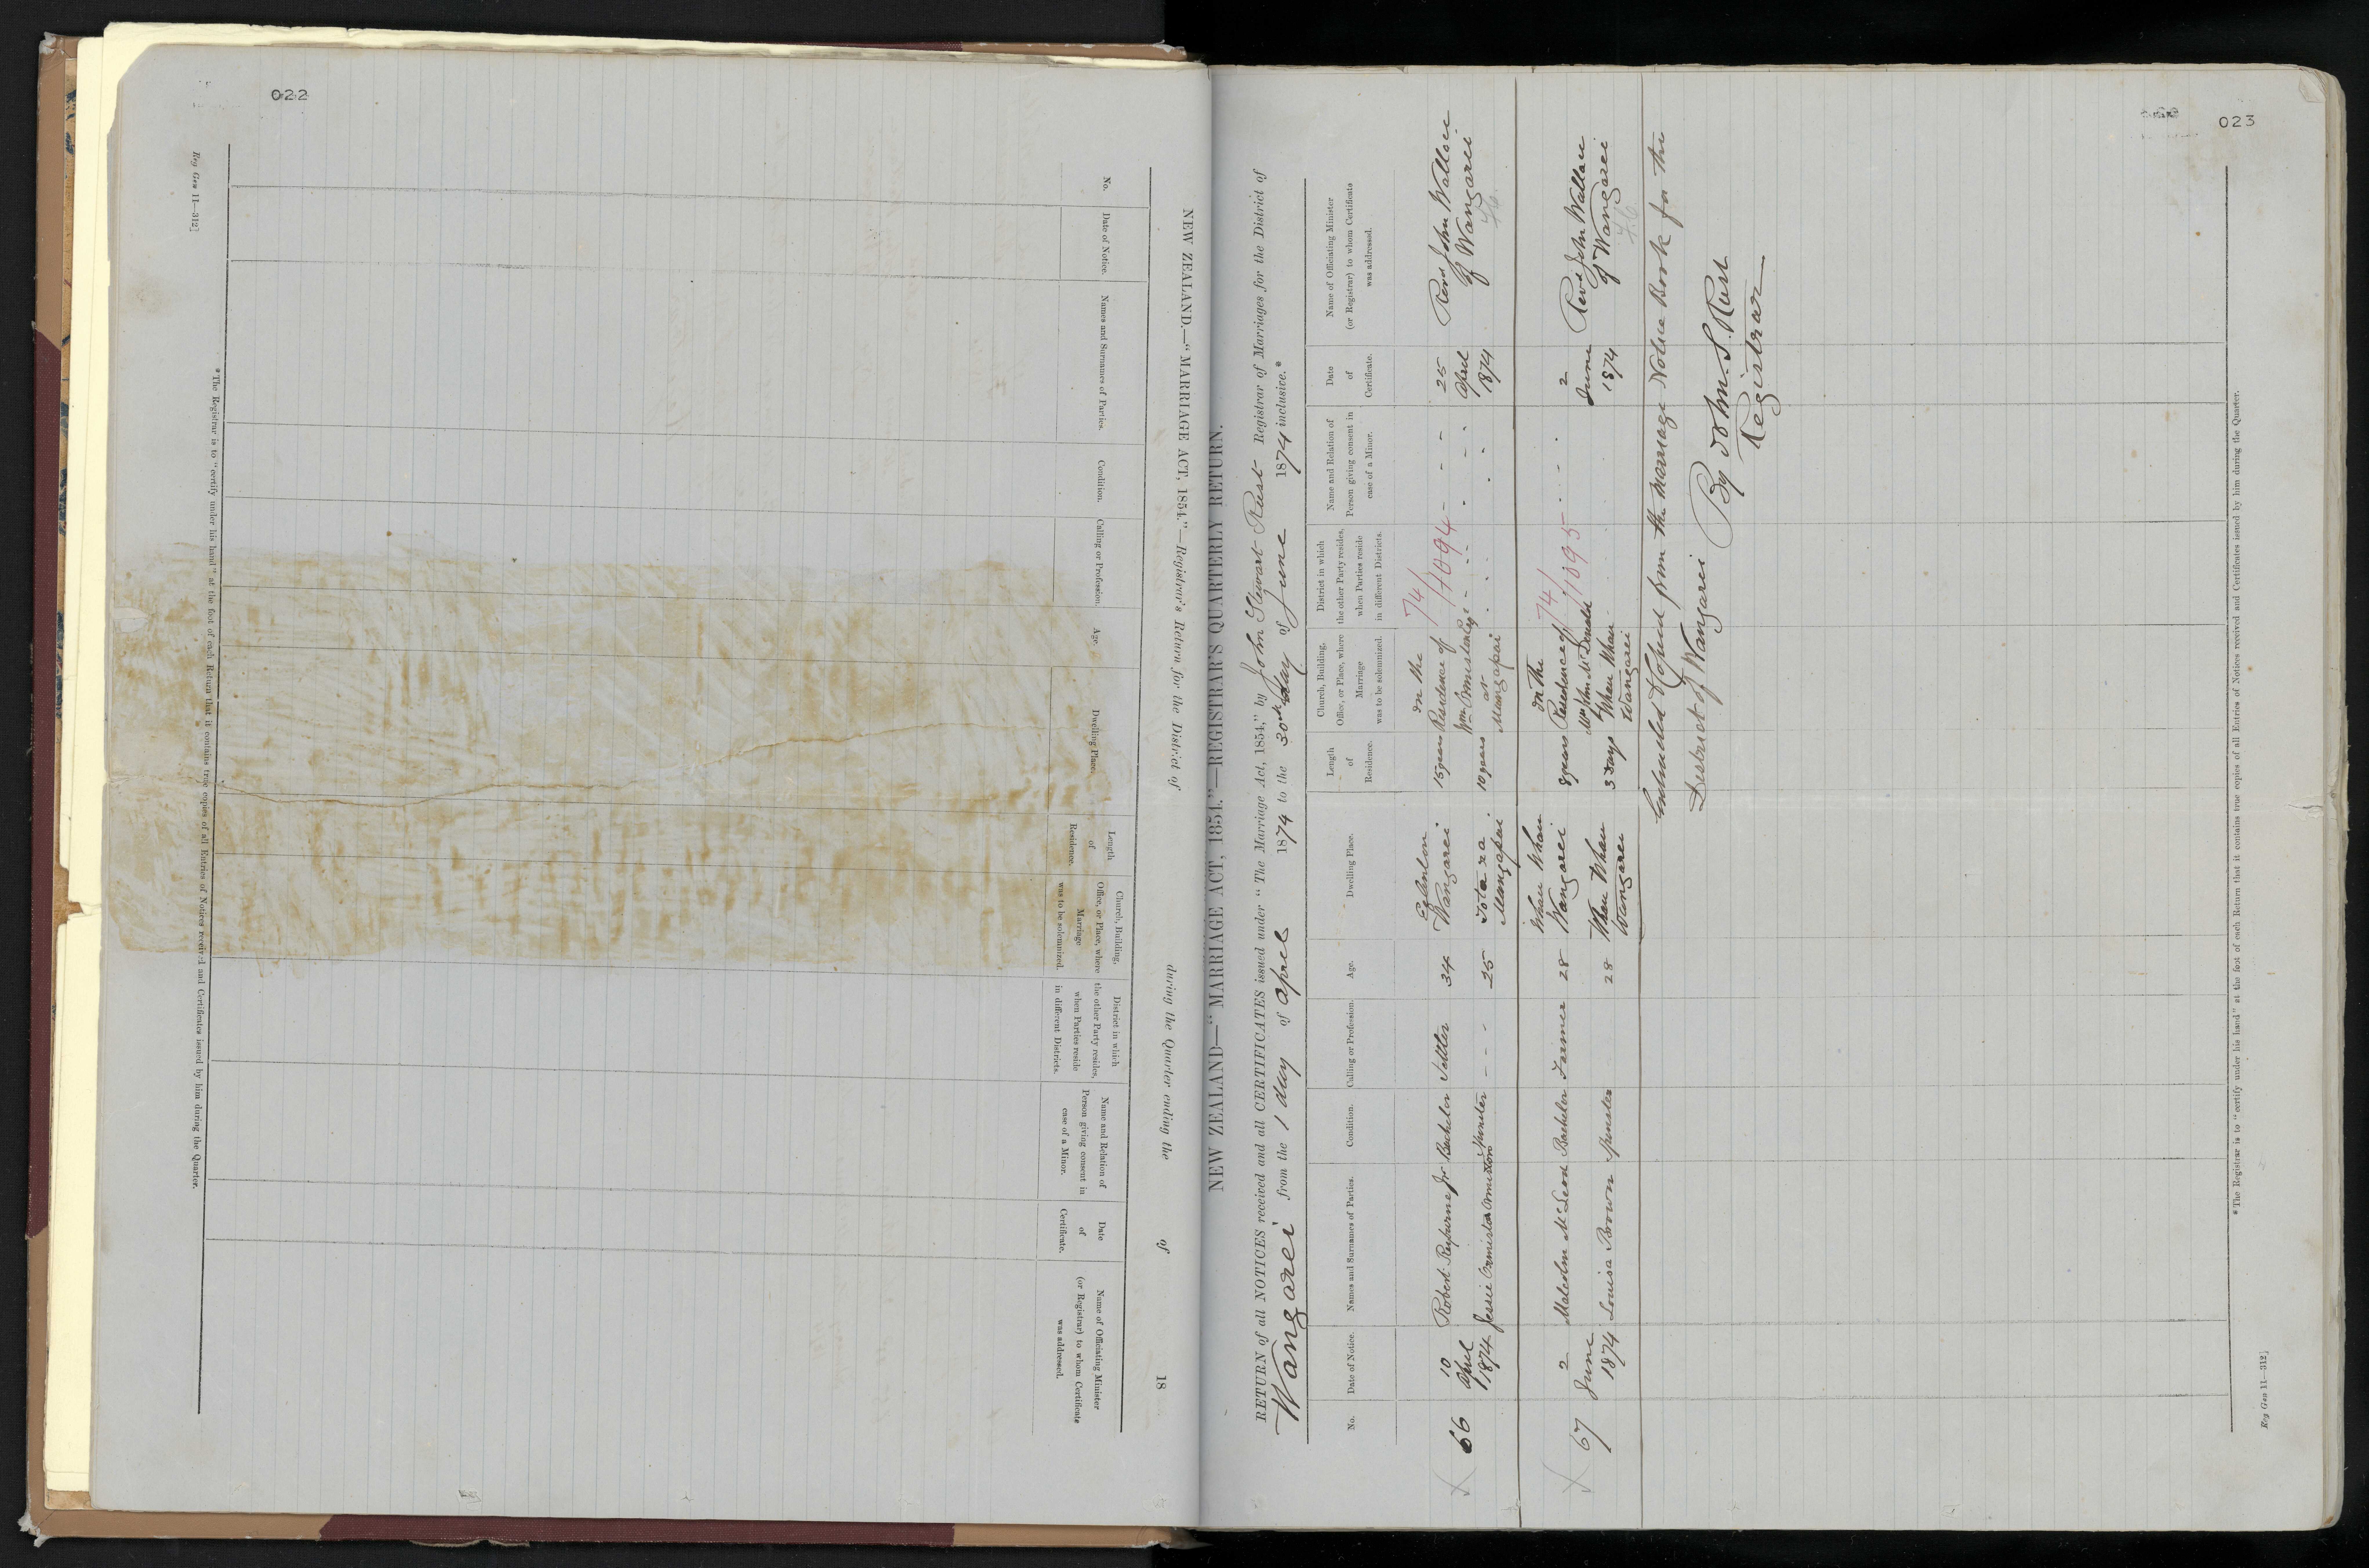 022
NEW ZEALAND.—"MARRIAGE ACT, 1854."—Registrar's Return for the District of during the Quarter ending the of 18
No.
Date of Notice.
Names and Surnames of Parties.
Condition.
Calling or Profession.
Age.
Dwelling Place.
Length
of
Residence.
Church, Building,
Office, or Place, where
Marriage
was to be solemnized.
District in which
the other Party resides,
when Parties reside
in different Districts.
Name and Relation of
Person giving consent in
case of a Minor.
Date
of
Certificate.
Name of Officiating Minister
(or Registrar) to whom Certificate
was addressed.
* The Registrar is to "certify under his hand" at the foot of each Return that it contains true copies of all Entries of Notices received and Certificates issued by him during the Quarter.
Reg Gen 11—312]
023
NEW ZEALAND—"MARRIAGE ACT, 1854."—REGISTRAR'S QUARTERLY RETURN.
RETURN of all NOTICES received and all CERTIFICATES issued under "The Marriage Act, 1854," by John Stewart Rust Registrar of Marriages for the District of
Wangarei from the 1 day of April 1874 to the 30th day of June 1874 inclusive.*
No.
Date of Notice.
Names and Surnames of Parties.
Condition.
Calling or Profession.
Age.
Dwelling Place.
Length
of
Residence.
Church, Building,
Office, or Place, where
Marriage
was to be solemnized.
District in which
the other Party resides,
when Parties reside
in different Districts.
Name and Relation of
Person giving consent in
case of a Minor.
Date
of
Certificate.
Name of Officiating Minister
(or Registrar) to whom Certificate
was addressed.
66
10
April
1874
Robert Reyburne Jr
Bachelor
Settler
34
Wangarei
15 years
Jessie Ormiston Ormiston
Spinster
- - -
25
Totara
Mangapai
10 years
In the
Residence of
Wm Ormiston Esq
at
Mangapai
74/1094
25
April
1874
Revd John Wallace
of Wangarei
46
67
2
June
1874
Malcolm McLeod
Bachelor
Farmer
28
Whau Whau
Wangarei
8 years
Louisa Brown
Spinster
28
Whau Whau
Wangarei
3 days
In the
Residence of
Mr John McDonald
Whau Whau
Wangarei
74/1095
2
June
1874
Revd John Wallace
of Wangarei
46
Extracted & Copied from the Marriage Notice Book for the
District of Wangarei
By John S. Rust
Registrar
* The Registrar is to "certify under his hand" at the foot of each Return that it contains true copies of all Entries of Notices received and Certificates issued by him during the Quarter.
Reg Gen 11—312]